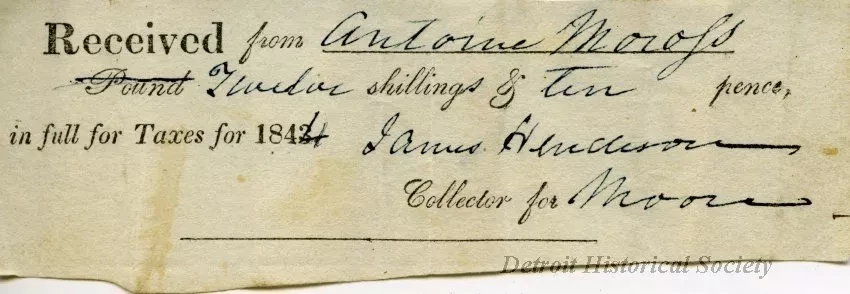 Received from Antoine Moross
Pound Twelve shillings & ten pence,
in full for Taxes for 1844 James Henderson
Collector for Moore
Detroit Historical Society